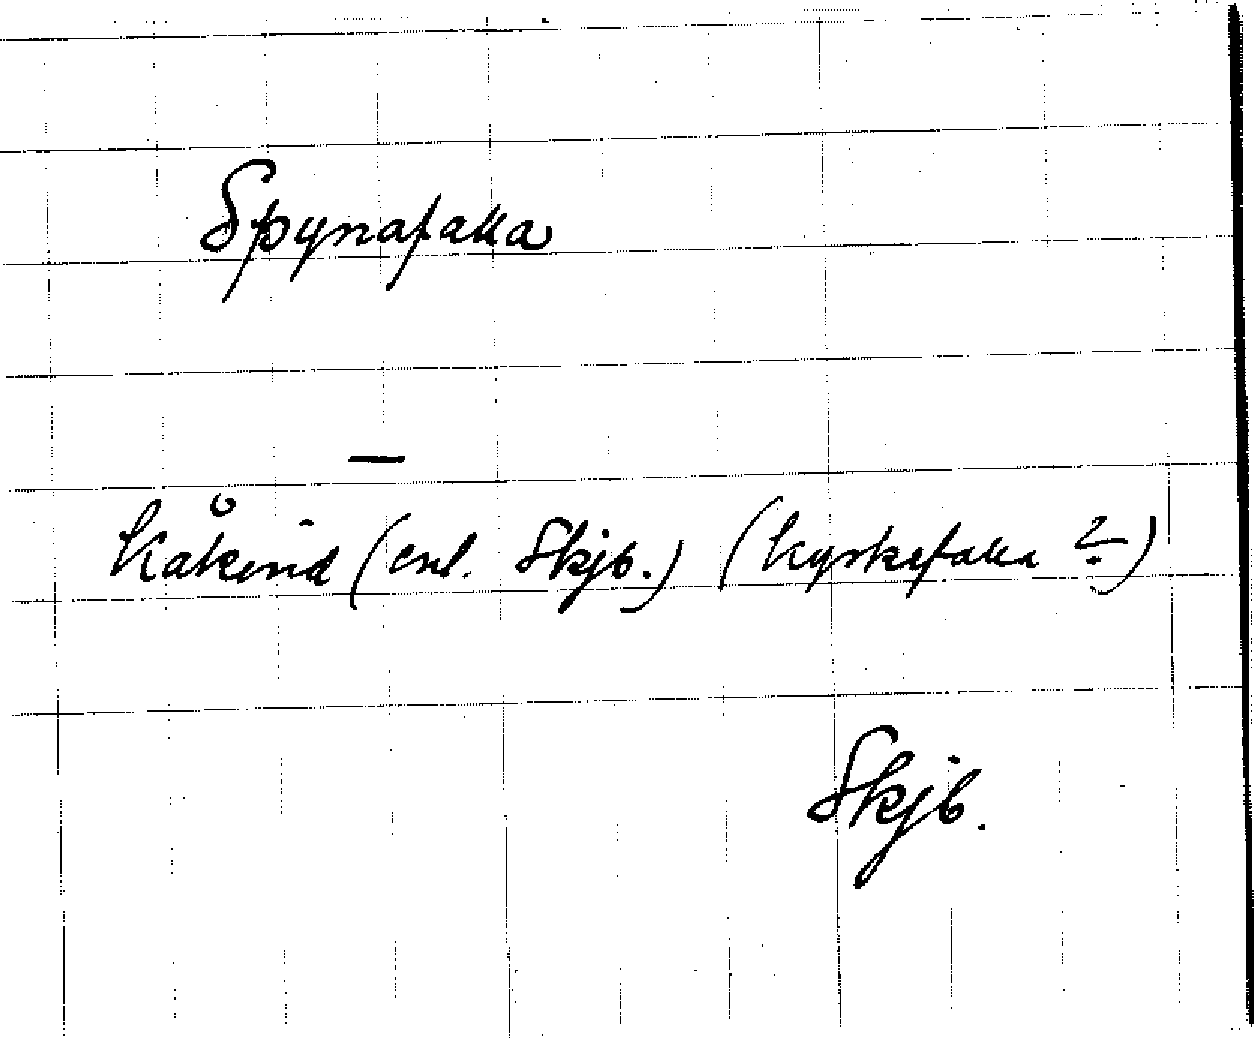 Spynafaka
—
Kåkind (enl. Skjb.) (kyskefaka ?)
Skjb.